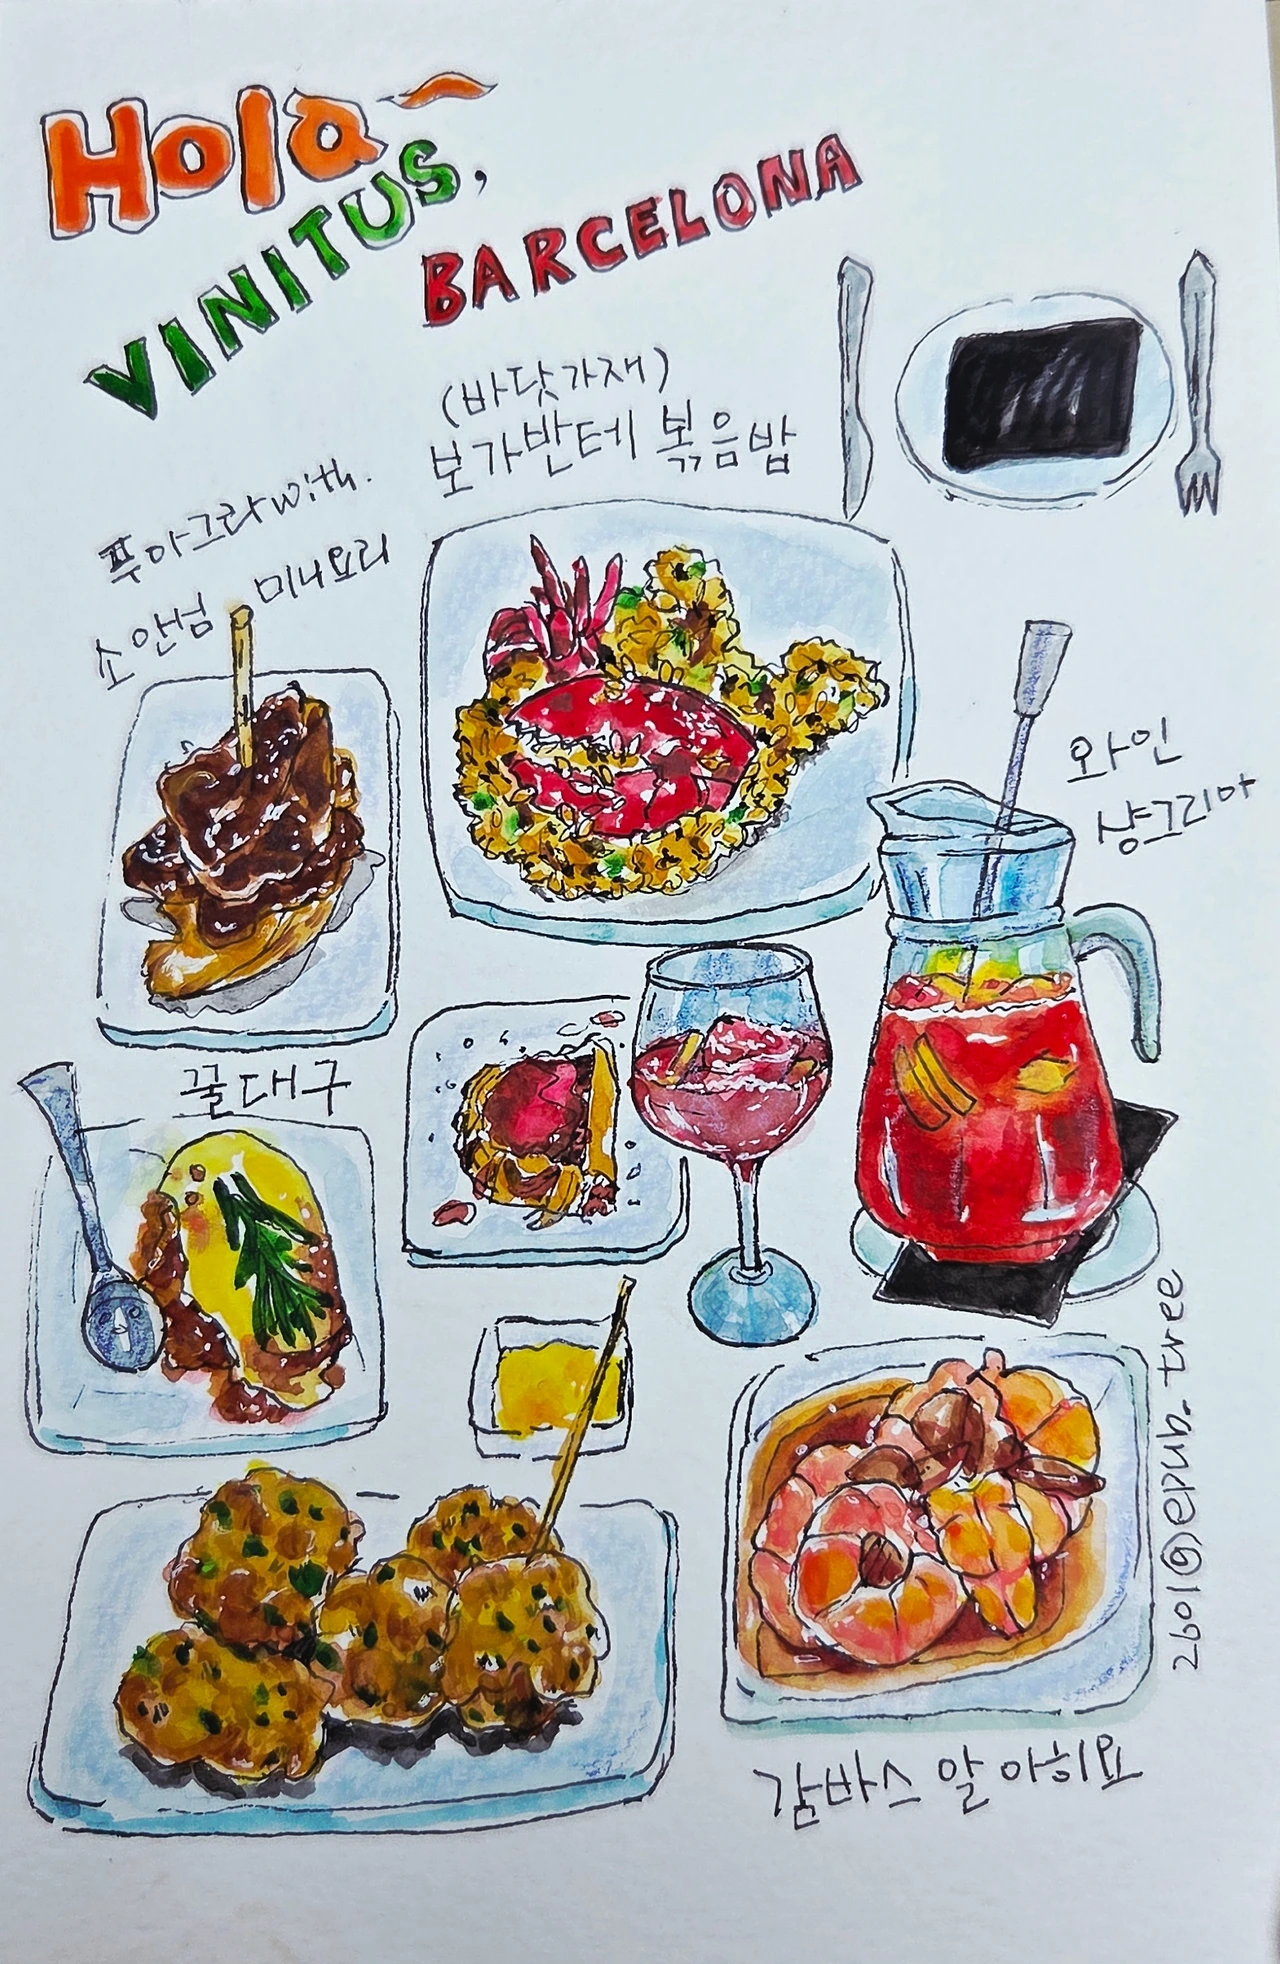 Hola~
VINITUS,
BARCELONA
(바닷가재)
보가반테 볶음밥
푸아그라 with.
소안썸 미니요리
와인
샹그리아
꿀대구
감바스 알 아히요
2601@epub_tree